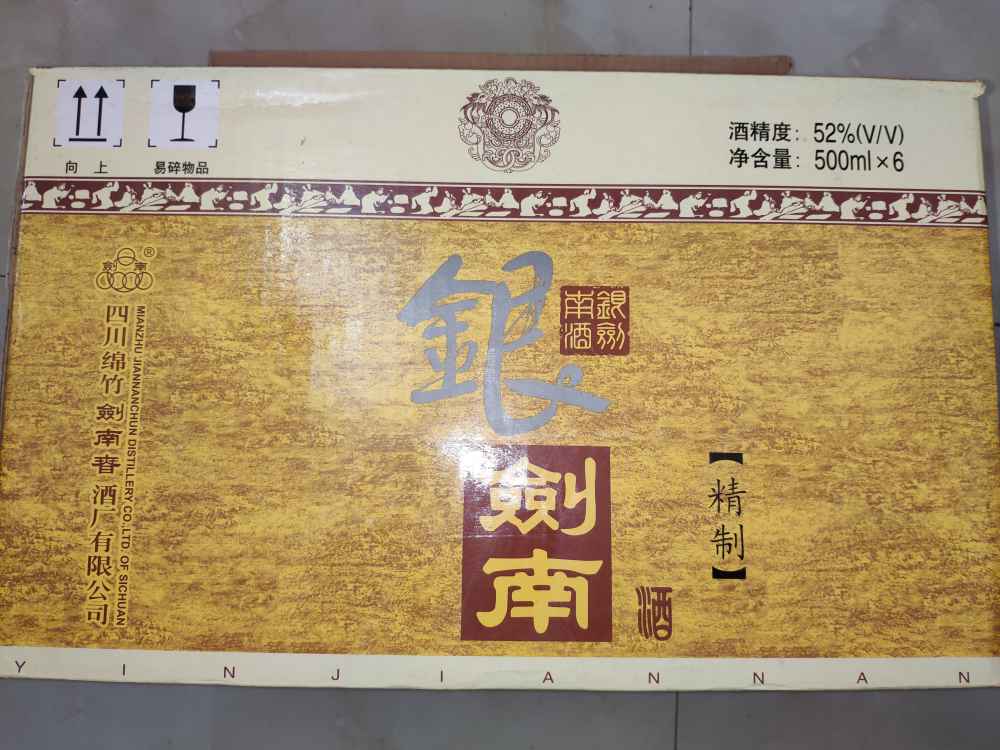 向 上
易碎物品
酒精度：52%(V/V)
净含量：500ml×6
劍南
®
四川绵竹劍南春酒厂有限公司
MIANZHU JIANNANCHUN DISTILLERY CO.,LTD. OF SICHUAN
銀
銀劍
南酒
劍
南
酒
【精制】
YINJIANNAN